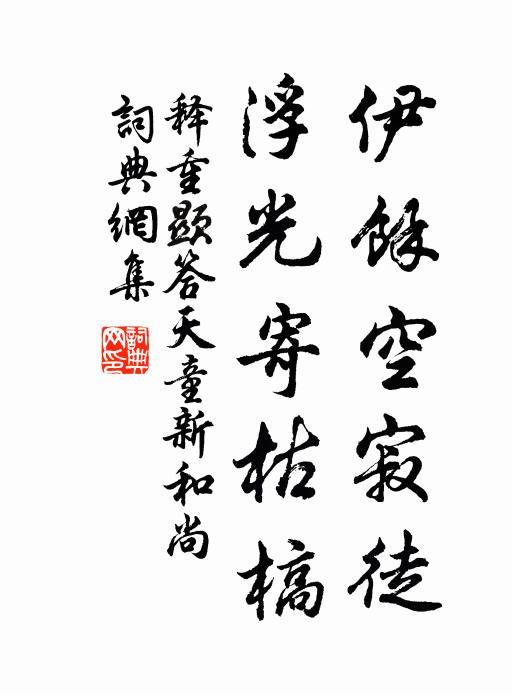 伊餘空寂徒
浮光寄枯槁
释重顯答天童新和尚
詞典網集
詞典網印